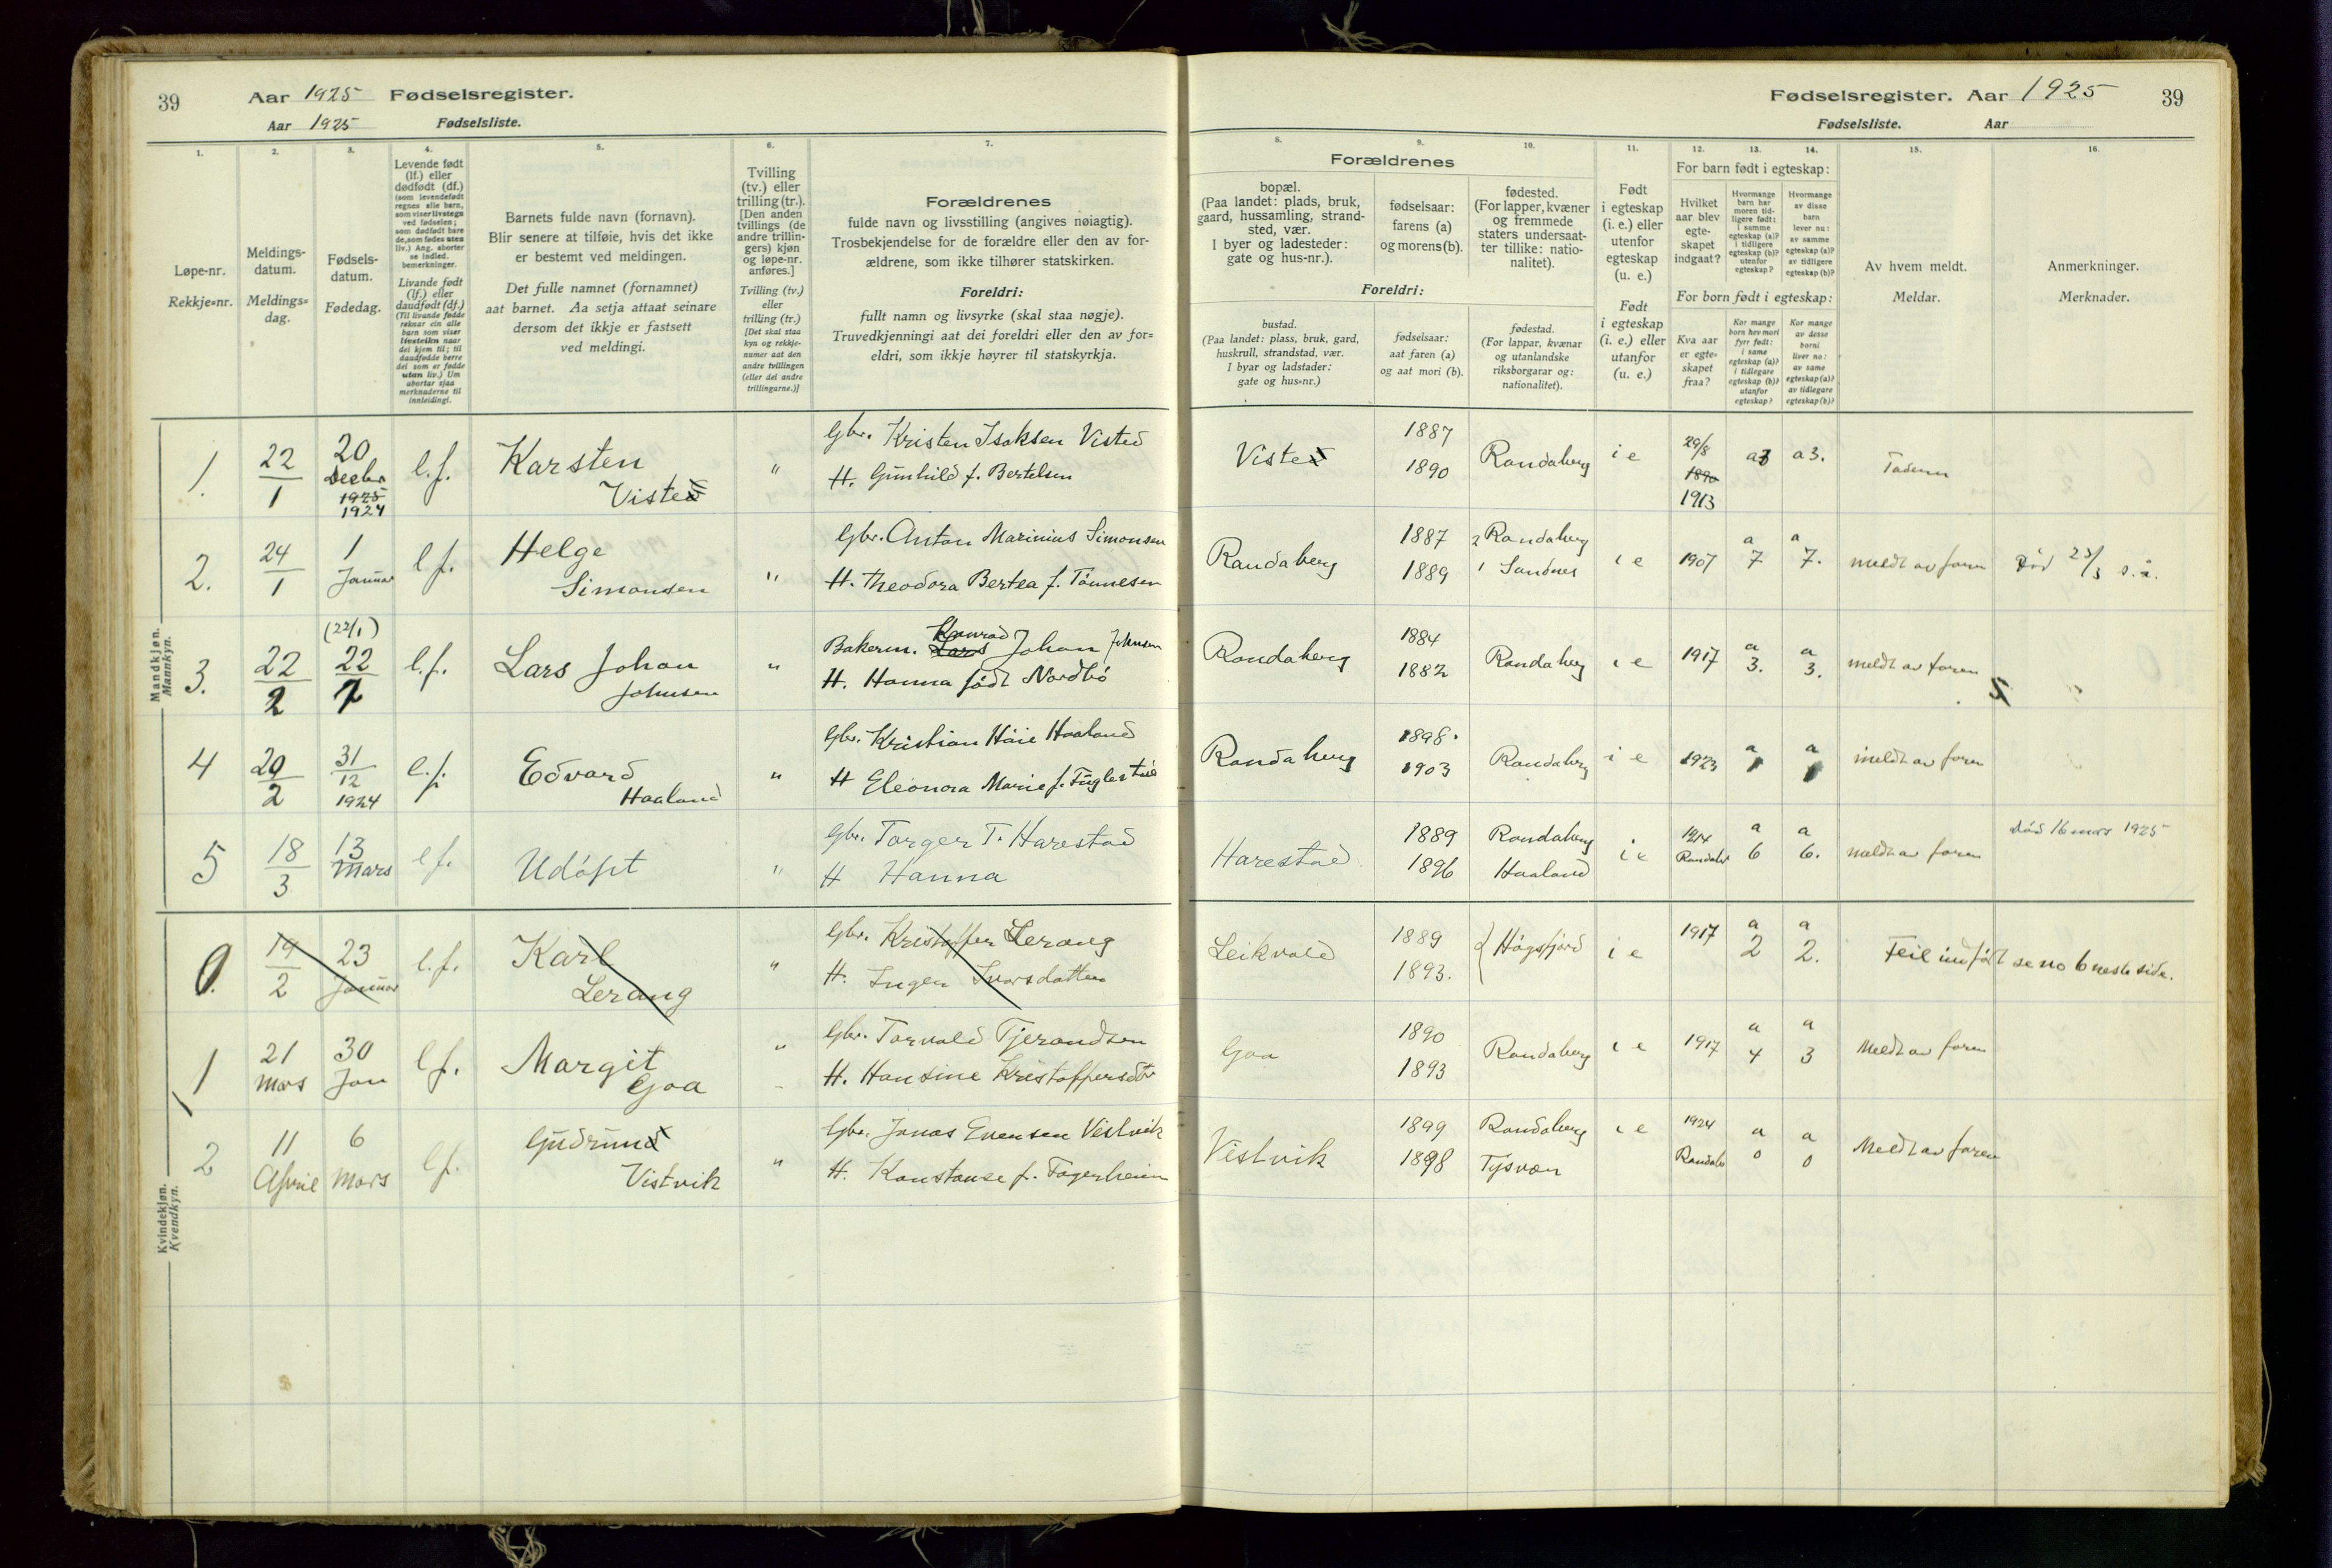 39 Aar 1925 Fødselsregister.
Aar 1925 Fødselsliste.
1.
2.
3.
4.
5.
6.
7.
Løpe-nr.
Rekkje=nr.
Meldings-
datum.
Meldings=
dag.
Fødsels-
datum.
Fødedag.
Levende født
(lf.) eller
dødfødt (df.)
(som levendefødt
regnes alle barn,
som viser livstegn
ved fødselen;
som dødfødt bare
de, som fødes uten
liv.) Ang. aborter
se indled.
bemerkninger.
Livande født
(lf.) eller
daudfødt (df.)
(Til livande fødde
reknar ein alle
barn som viser
livsteikn naar
dei kjem til; til
daudfødde berre
dei som er fødde
utan liv.) Um
abortar sjaa
merknaderne til
innleidingi.
Barnets fulde navn (fornavn).
Blir senere at tilføie, hvis det ikke
er bestemt ved meldingen.
Det fulle namnet (fornamnet)
aat barnet. Aa setja attaat seinare
dersom det ikkje er fastsett
ved meldingi.
Tvilling
(tv.) eller
trilling (tr.).
[Den anden
tvillings (de
andre trillin-
gers) kjøn
og løpe-nr.
anføres.]
Tvilling (tv.)
eller
trilling (tr.)
[Det skal staa
kyn og rekkje-
numer aat den
andre tvillingen
(eller dei andre
trillingarne.)]
Forældrenes
fulde navn og livsstilling (angives nøiagtig).
Trosbekjendelse for de forældre eller den av for-
ældrene, som ikke tilhører statskirken.
Foreldri:
fullt namn og livsyrke (skal staa nøgje).
Truvedkjenningi aat dei foreldri eller den av for=
eldri, som ikkje høyrer til statskyrkja.
Mandkjøn.
Mannkyn.
1. 22/1 20 Decbr 1925 1924 l.f. Karsten Visted " Gbr. Kristen Isaksen Visted
H. Gunhild f. Bertelsen
2. 24/1 1 Januar l.f. Helge Simonsen " Gbr. Anton Marinius Simonsen
H. Theodora Bertea f. Tønnesen
3. 22/2 (22/1) 22/1 l.f. Lars Johan Johnsen " Bakerm. Lars Konrad Johan Johnsen
H. Hanna født Nordbö
4 20/2 31/12 1924 l.f. Edvard Haaland " Gbr. Kristian Håie Haaland
H Eleonora Marie f. Fuglestad
5 18/3 13 Mars l.f. Udöpt " Gbr. Torger T. Harestad
H Hanna
Kvindekjøn.
Kvendkyn.
0. 19/2 23 Januar l.f. Karl Lerang " Gbr. Kristoffer Lerang
H. Inger Ivarsdatter
1 21 Mars 30 Jan l.f. Margit Goa " Gbr. Torvald Tjerandsen
H. Hansine Kristoffersdtr
2 11 April 6 Mars l.f. Gudrund Vistvik " Gbr. Jonas Evensen Vistvik
H. Konstanse f. Fagerheim
Fødselsregister. Aar 1925 39
Fødselsliste. Aar
8.
9.
10.
11.
12.
13.
14.
15.
16.
Forældrenes
bopæl.
(Paa landet: plads, bruk,
gaard, hussamling, strand-
sted, vær.
I byer og ladesteder:
gate og hus-nr.).
fødselsaar:
farens (a)
og morens (b).
fødested.
(For lapper, kvæner
og fremmede
staters undersaat-
ter tillike: natio-
nalitet).
Foreldri:
bustad.
(Paa landet: plass, bruk, gard,
huskrull, strandstad, vær.
I byar og ladstader:
gate og hus=nr.)
fødselsaar:
aat faren (a)
og aat mori (b).
fødestad.
(For lappar, kvænar
og utanlandske
riksborgarar og:
nationalitet).
Født
i egteskap
(i. e.) eller
utenfor
egteskap
(u. e.)
Født
i egteskap
(i. e.) eller
utanfor
(u. e.)
For barn født i egteskap:
Hvilket
aar blev
egte-
skapet
indgaat?
Hvormange
barn har
moren tid-
ligere født:
i samme
egteskap (a)?
i tidligere
egteskap (b)?
utenfor
egteskap?
Hvormange
av disse
barn
lever nu:
av samme
egteskap (a)?
av tidligere
egteskap (b)?
For born født i egteskap:
Kva aar
er egte-
skapet
fraa?
Kor mange
born hev mori
fyrr født:
i same
egteskap (a)?
i tidlegare
egteskap (b)?
utanfor
egteskap?
Kor mange
av desse
borni
liver no:
av same
egteskap (a)?
av tidlegare
egteskap (b)?
Av hvem meldt.
Meldar.
Anmerkninger.
Merknader.
Visted 1887 1890 Randaberg i e 29/8 1890 1913 a3 a3. Faderen
Randaberg 1887 1889 2 Randaberg 1 Sandnes i e 1907 a 7 a 7. meldt av faren Död 23/3 s.å.
Randaberg 1884 1882 Randaberg i e 1917 a 3. a 3. meldt av faren "
Randaberg 1898. 1903 Randaberg i e 1923 a 1 a 1 meldt av faren "
Harestad 1889 1896 Randaberg Haaland i e 1914 Randabr a 6 a 6. meldt av faren död 16 mars 1925
Leikvold 1889 1893. Högsfjord i e 1917 a 2 a 2. Feil indfört se no 6 neste side.
Goa 1890 1893 Randaberg i e 1917 a 4 a 3 Meldt av faren
Vistvik 1899 1898 Randaberg Tysvær i e 1924 Randabr a 0 a 0 Meldt av faren